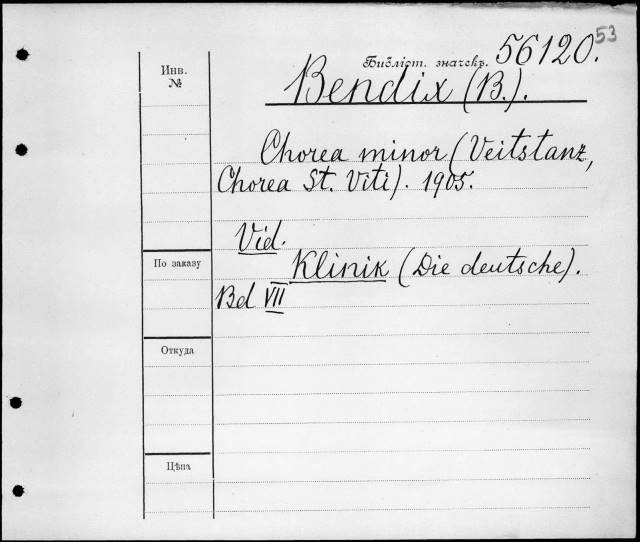 53
Библіот. значекъ. 56120.
Инв.
№
Bendix (B.).
Chorea minor (Veitstanz,
Chorea St. Viti). 1905.
Vid.
По заказу
Klinik (Die deutsche).
Bd VII
Откуда
Цѣна